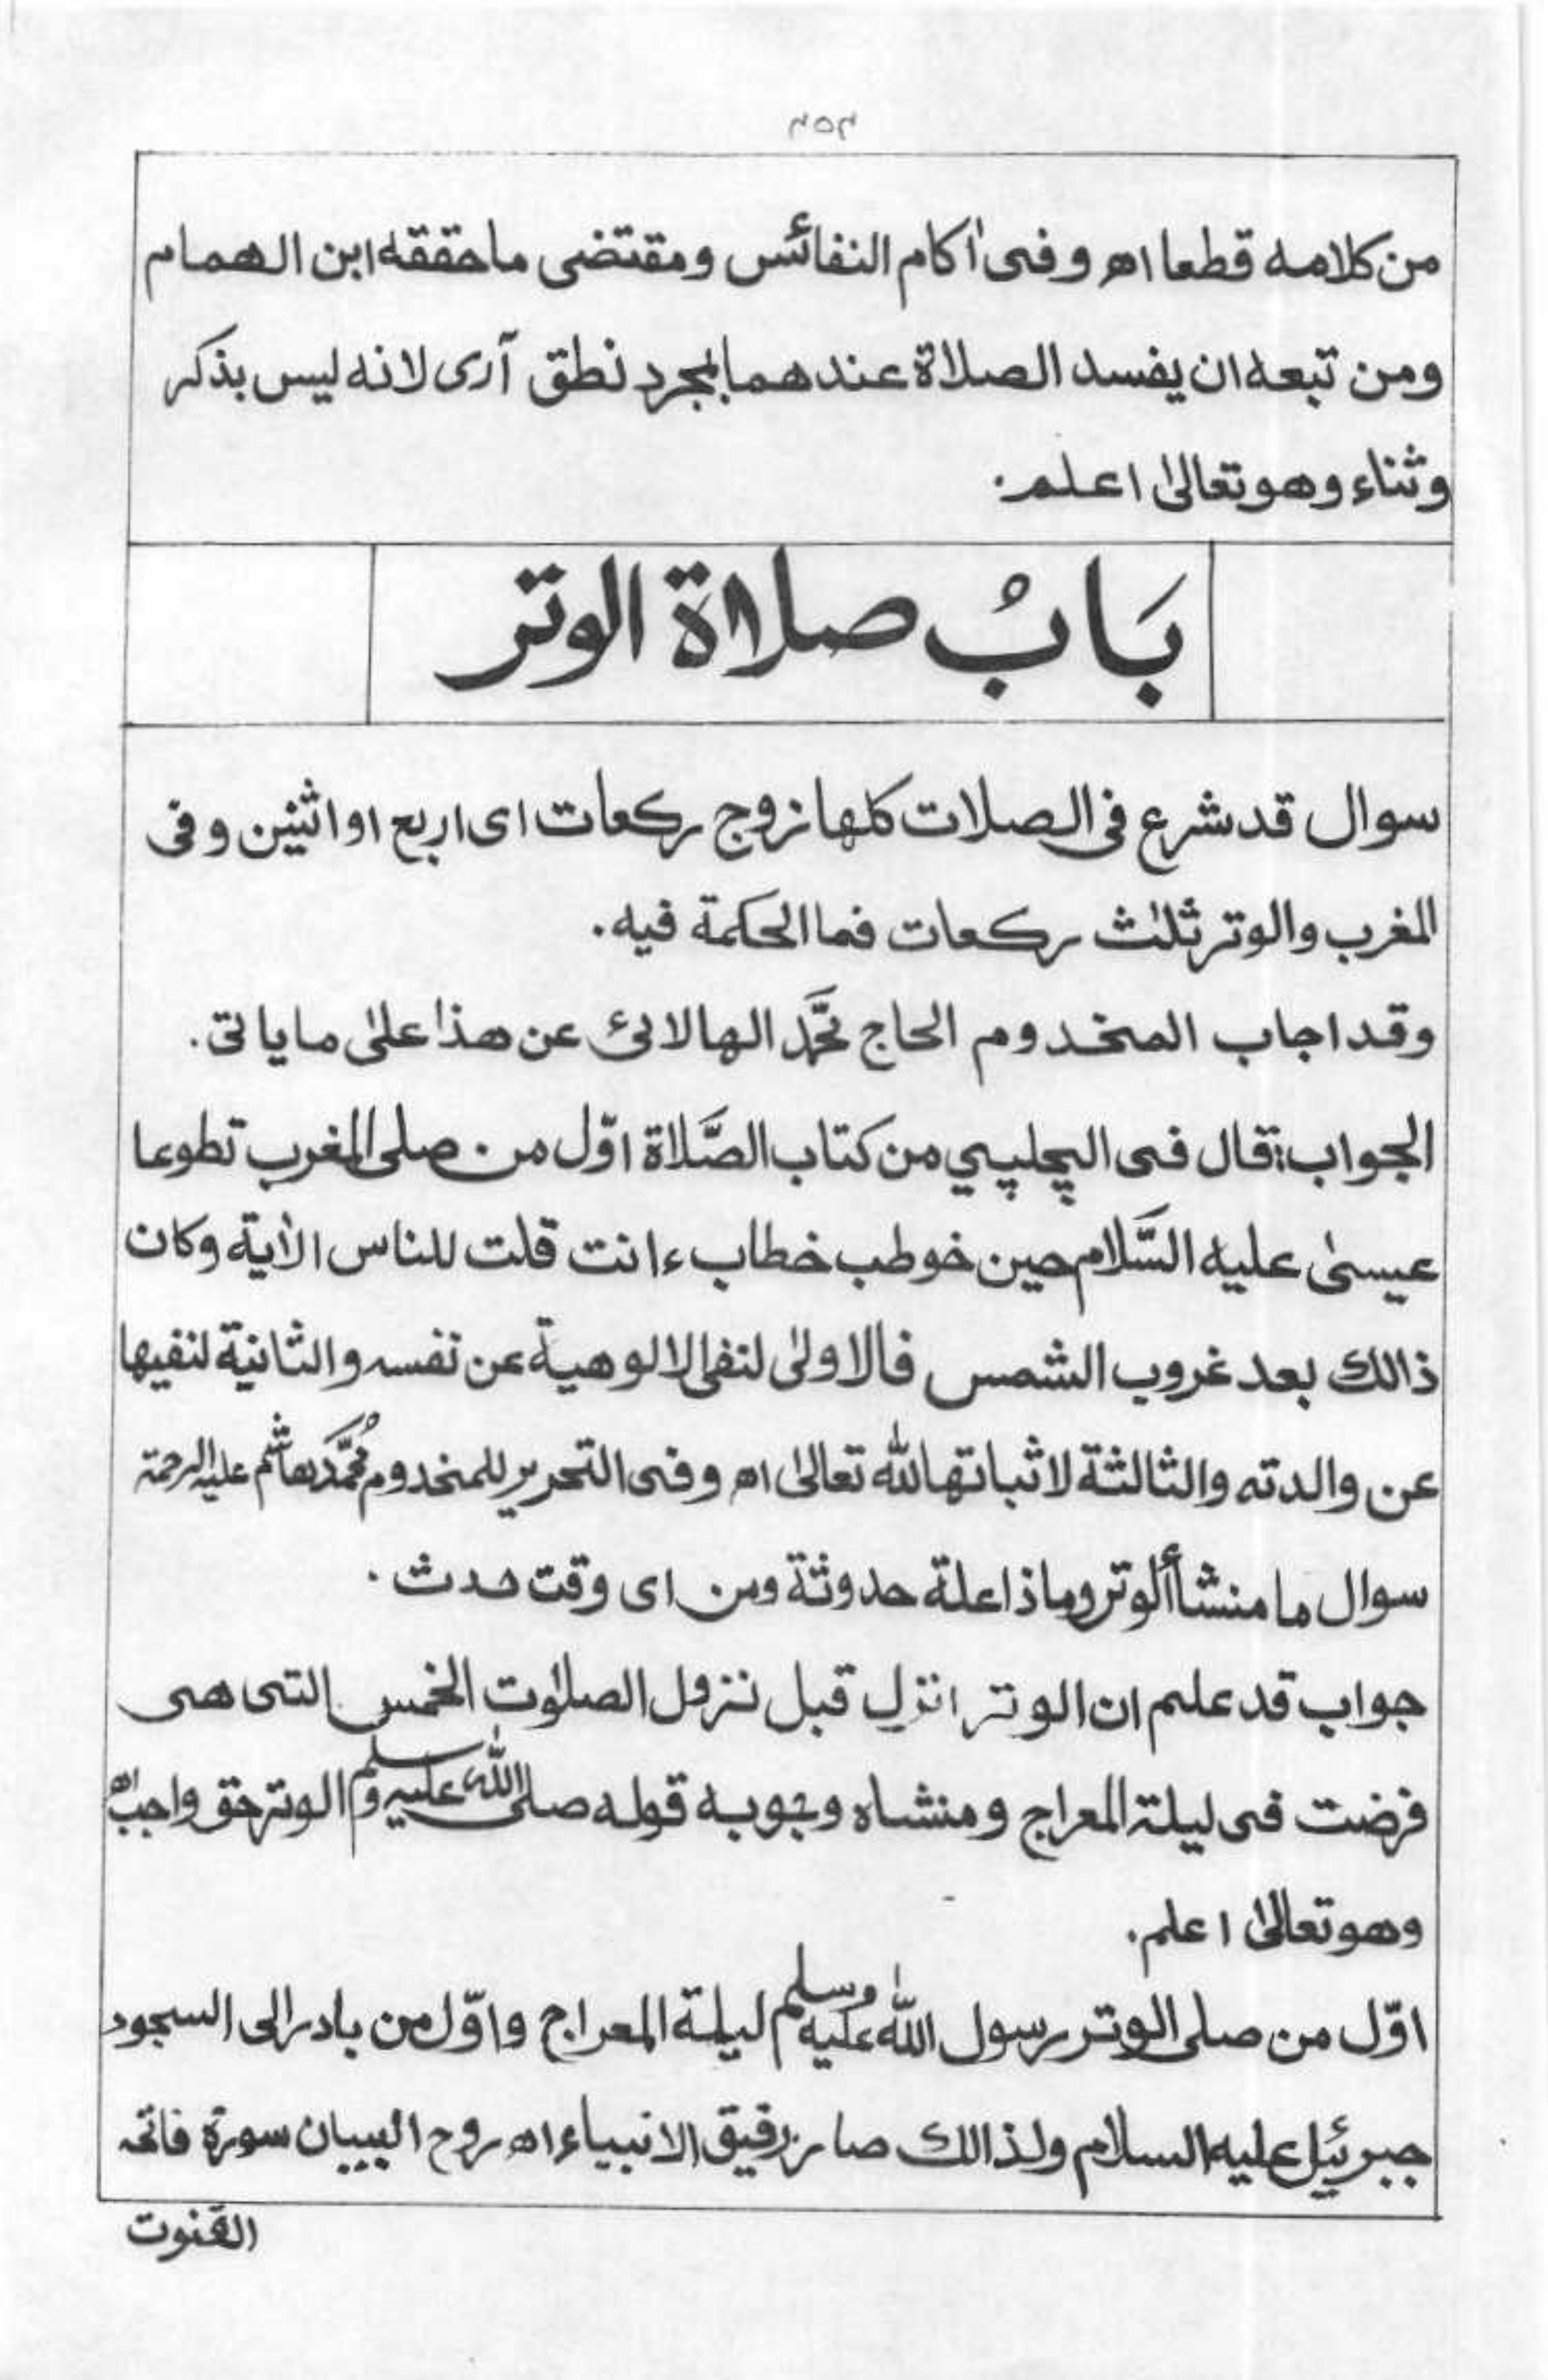 ٢٥٢
من كلامه قطعا اھ وفى اٰكام النفائس ومقتضى ماحققه ابن الهمام
ومن تبعه ان يفسد الصلاة عندهما بمجرد نطق آرى لانه ليس بذكر
وثناء وهو تعالىٰ اعلم.
بَابُ صلاة الوتر
سوال قد شرع فى الصلات كلها زوج ركعات اى اربع او اثنين وفى
المغرب والوتر ثلٰث ركعات فما الحكمة فيه.
وقد اجاب المخدوم الحاج محَّمد الهالائى عن هذا علىٰ ما ياتى.
الجواب: قال فى الچلپي من كتاب الصَّلاة اوّل من صلى المغرب تطوعا
عيسىٰ عليه السَّلام حين خوطب خطاب ءانت قلت للناس الاٰية وكان
ذالك بعد غروب الشمس فالاولىٰ لنفى الالوهية عن نفسه والثانية لنفيها
عن والدته والثالثة لاثباتها لله تعالىٰ اھ وفى التحرير للمخدوم مُحَمَّد هاشم عليه الرحمة
سوال ما منشأ الوتر وماذا علة حدوثة ومن اى وقت حدث.
جواب قد علم ان الوتر انزل قبل نزول الصلوٰت الخمس التى هى
فرضت فى ليلة المعراج ومنشاه وجوبه قوله صلى الله عليه وسلم الوتر حق واجب اھ
وهو تعالىٰ اعلم.
اوّل من صلى الوتر رسول الله عليه وسلم ليلة المعراج واوّل من بادر الى السجود
جبرئيل عليه السلام ولذالك صار رفيق الانبياء اھ روح البيان سورة فاتحہ
القنوت